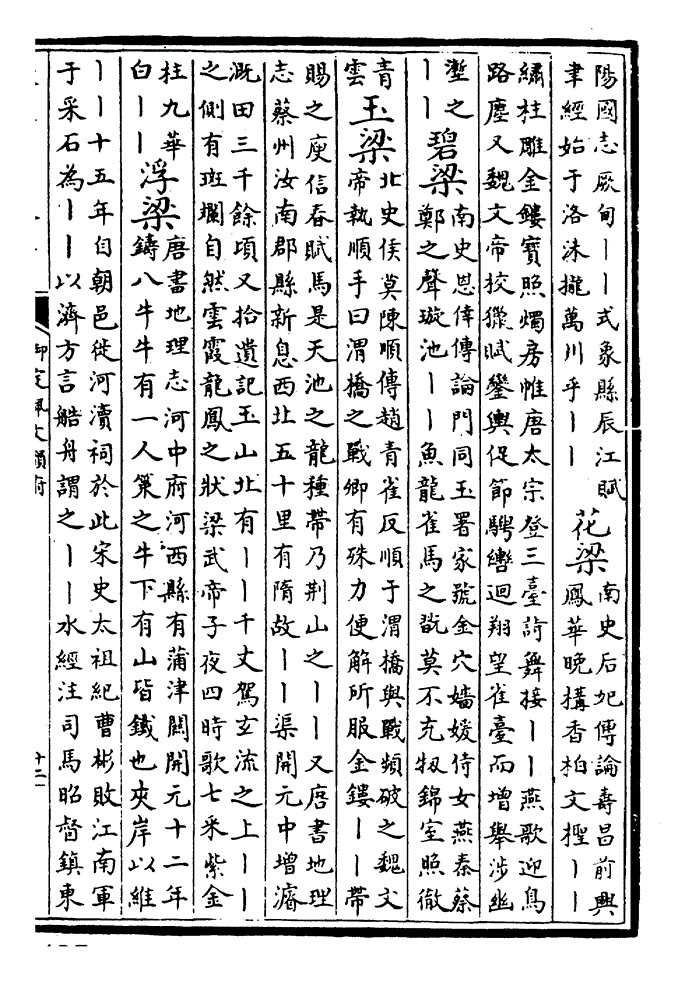 陽國志厥甸丨丨式象縣辰江賦
聿經始于洛沬攏萬川乎丨丨
花梁
南史后妃傳論壽昌前興
鳳華晚構香柏文檉丨丨
繡柱雕金鏤寶照燭房帷唐太宗登三臺詩舞接丨丨燕歌迎鳥
路塵又魏文帝校獵賦鑾輿促節騁轡迴翔望雀臺而增舉涉幽
塹之
丨丨
碧梁
南史恩倖傳論門同玉署家號金穴嬙媛侍女燕秦蔡
鄭之聲璇池丨丨魚龍雀馬之翫莫不充牣錦室照徹
青
雲
玉梁
北史侯莫陳順傳趙青雀反順于渭橋與戰頻破之魏文
帝執順手曰渭橋之戰卿有殊力便解所服金鏤丨丨帶
賜之庾信春賦馬是天池之龍種帶乃荆山之丨丨又唐書地理
志蔡州汝南郡縣新息西北五十里有隋故丨丨渠開元中增濬
溉田三千餘頃又拾遺記玉山北有丨丨千丈駕玄流之上丨丨
之側有斑斕自然雲霞龍鳳之狀梁武帝子夜四時歌七采紫金
柱九華
白丨丨
浮梁
唐書地理志河中府河西縣有蒲津關開元十二年
鑄八牛牛有一人策之牛下有山皆鐵也夾岸以維
丨丨十五年自朝邑徙河瀆祠於此宋史太祖紀曹彬敗江南軍
于采石為丨丨以濟方言艁舟謂之丨丨水經注司馬昭督鎮東
御定佩文韻府
十二